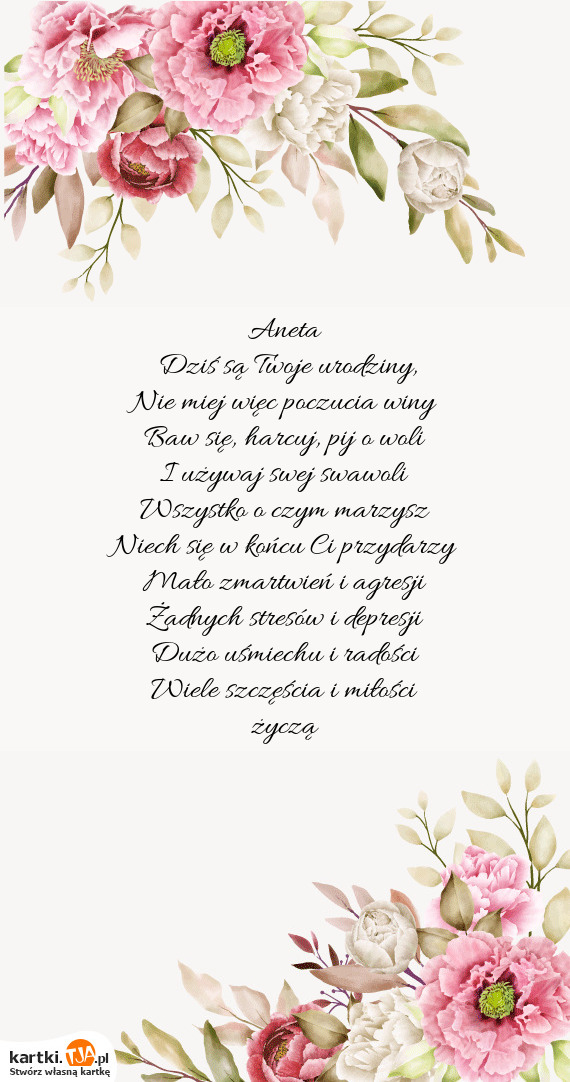 Aneta
Dziś są Twoje urodziny,
Nie miej więc poczucia winy
Baw się, harcuj, pij o woli
I używaj swej swawoli
Wszystko o czym marzysz
Niech się w końcu Ci przydarzy
Mało zmartwień i agresji
Żadnych stresów i depresji
Dużo uśmiechu i radości
Wiele szczęścia i miłości
życzą
kartki.TJA.pl
Stwórz własną kartkę